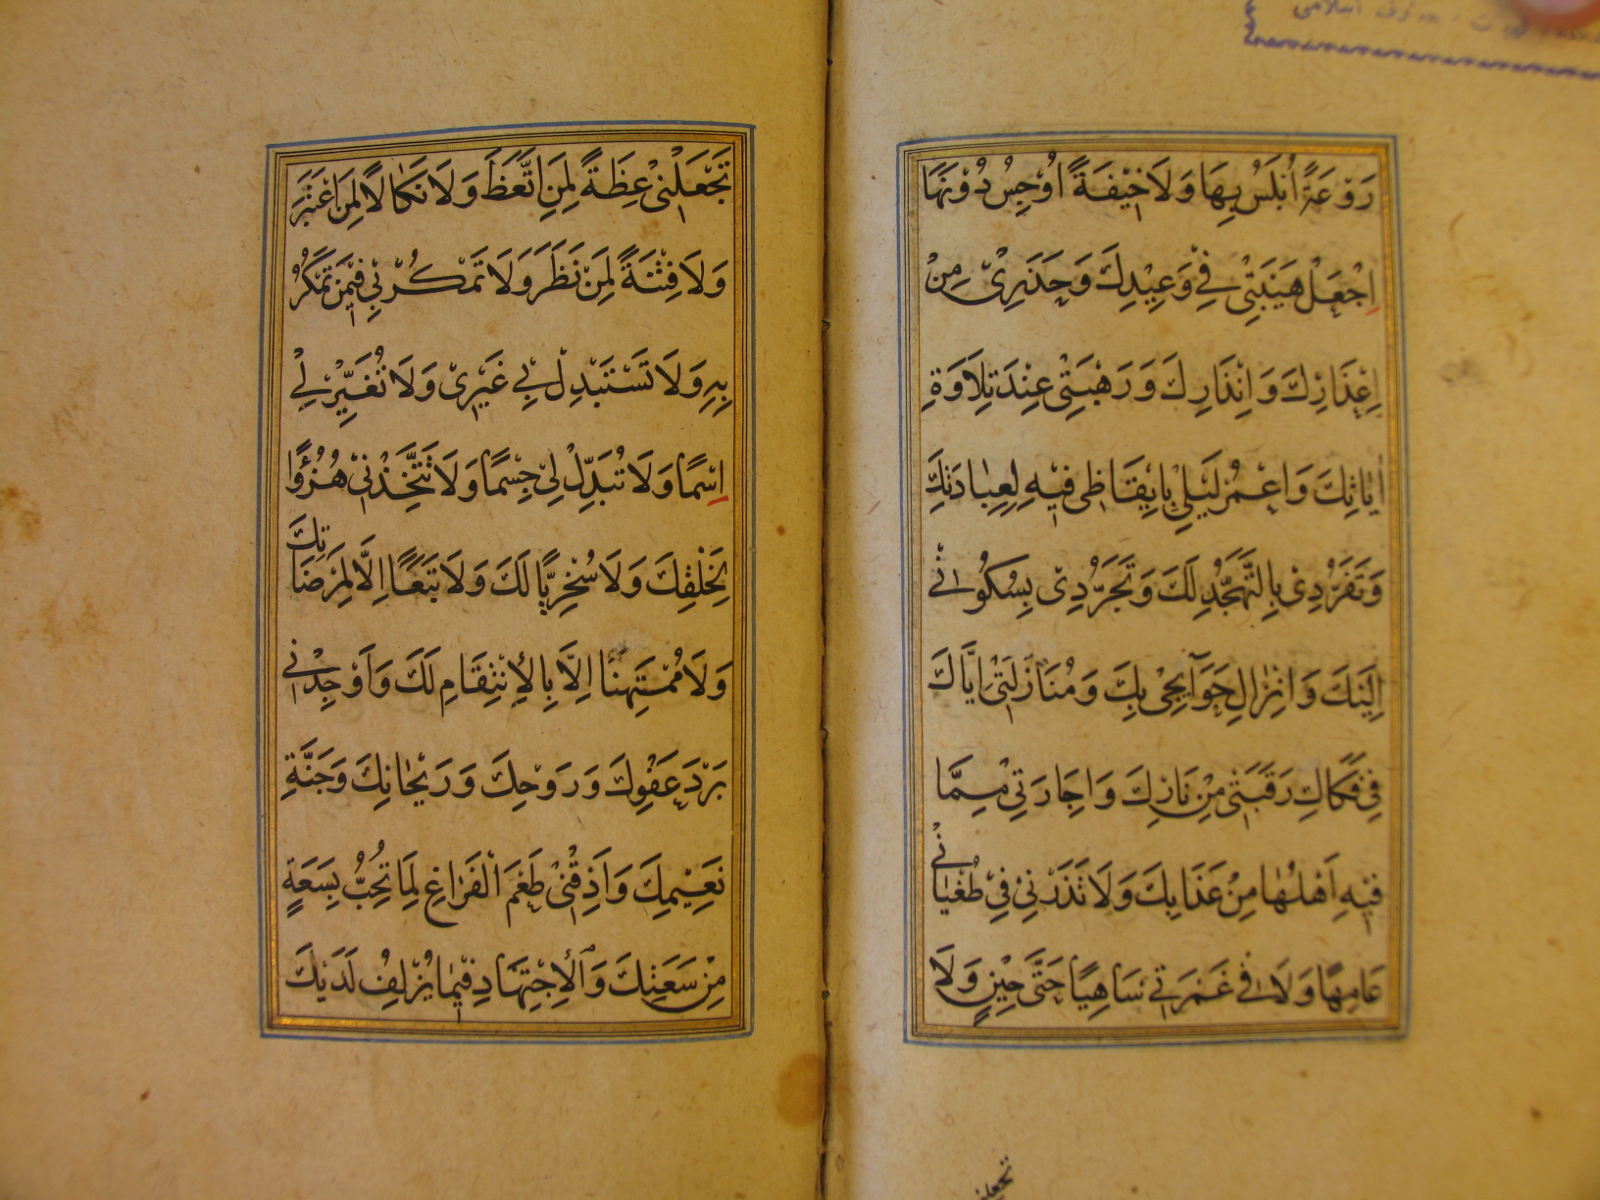 رَوْعَةً اُبْلَسُ بِهَا وَلَا خِيْفَةً اُوْجِسُ دُوْنَهَا
اِجْعَلْ هَيْبَتِيْ فِيْ وَعِيْدِكَ وَحَذَرِيْ مِنْ
اِعْذَارِكَ وَاِنْذَارِكَ وَرَهْبَتِيْ عِنْدَ تِلَاوَةِ
اٰيَاتِكَ وَاعْمُرْ لَيْلِيْ بِاِيْقَاظِيْ فِيْهِ لِعِبَادَتِكَ
وَتَفَرُّدِيْ بِالتَّهَجُّدِ لَكَ وَتَجَرُّدِيْ بِسُكُوْنِيْ
اِلَيْكَ وَاِنْزَالِ حَوَآئِجِيْ بِكَ وَمُنَازَلَتِيْ اِيَّاكَ
فِيْ فَكَاكِ رَقَبَتِيْ مِنْ نَارِكَ وَاِجَارَتِيْ مِمَّا
فِيْهِ اَهْلُهَا مِنْ عَذَابِكَ وَلَا تَذَرْنِيْ فِيْ طُغْيَانِيْ
عَامِهًا وَلَا فِيْ غَمْرَتِيْ سَاهِيًا حَتّٰى حِيْنٍ وَلَا
تجعلنى
تَجْعَلْنِيْ عِظَةً لِمَنِ اتَّعَظَ وَلَا نَكَالًا لِمَنِ اعْتَبَرَ
وَلَا فِتْنَةً لِمَنْ نَظَرَ وَلَا تَمْكُرْ بِيْ فِيْمَنْ تَمْكُرُ
بِهِ وَلَا تَسْتَبْدِلْ بِيْ غَيْرِيْ وَلَا تُغَيِّرْ لِيْ
اِسْمًا وَلَا تُبَدِّلْ لِيْ جِسْمًا وَلَا تَتَّخِذْنِيْ هُزُؤًا
لِخَلْقِكَ وَلَا سُخْرِيًّا لَكَ وَلَا تَبَعًا اِلَّا لِمَرْضَاتِكَ
وَلَا مُمْتَهَنًا اِلَّا بِالْاِنْتِقَامِ لَكَ وَاَوْجِدْنِيْ
بَرْدَ عَفْوِكَ وَرَوْحِكَ وَرَيْحَانِكَ وَجَنَّةِ
نَعِيْمِكَ وَاَذِقْنِيْ طَعْمَ الْفَرَاغِ لِمَا تُحِبُّ بِسَعَةٍ
مِنْ سَعَتِكَ وَالْاِجْتِهَادِ فِيْمَا يُزْلِفُ لَدَيْكَ